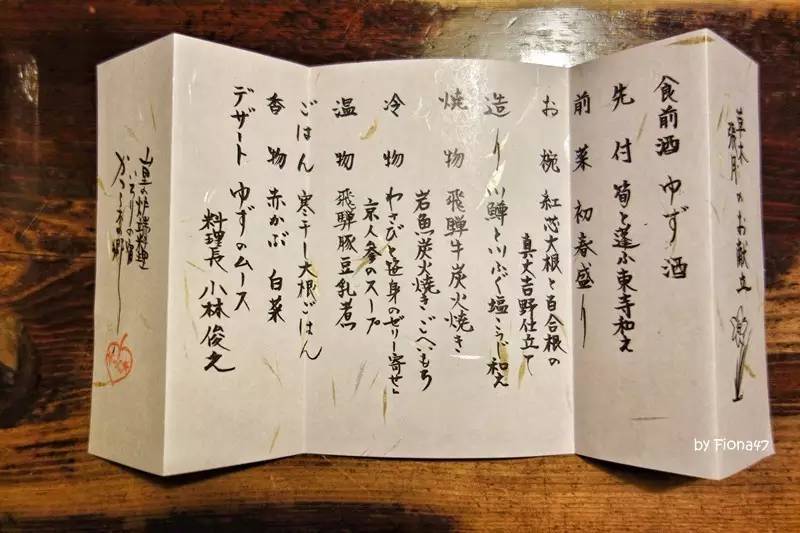 草木張月のお献立
食前酒 ゆず酒
先付 筍と蓬ふ東寺和え
前菜 初春盛り
お椀 紅芯大根と百合根の
真丈吉野仕立て
造り 川鱒と川ふぐ塩こうじ和え
焼物 飛騨牛炭火焼き
岩魚炭火焼き ごへいもち
冷物 わさびと笹身のゼリー寄せ
京人参のスープ
温物 飛騨豚豆乳煮
ごはん 寒干し大根ごはん
香物 赤かぶ 白菜
デザート ゆずのムース
料理長 小林俊之
山里の炉端料理
いろりの宿
かつら木の郷
by Fiona47